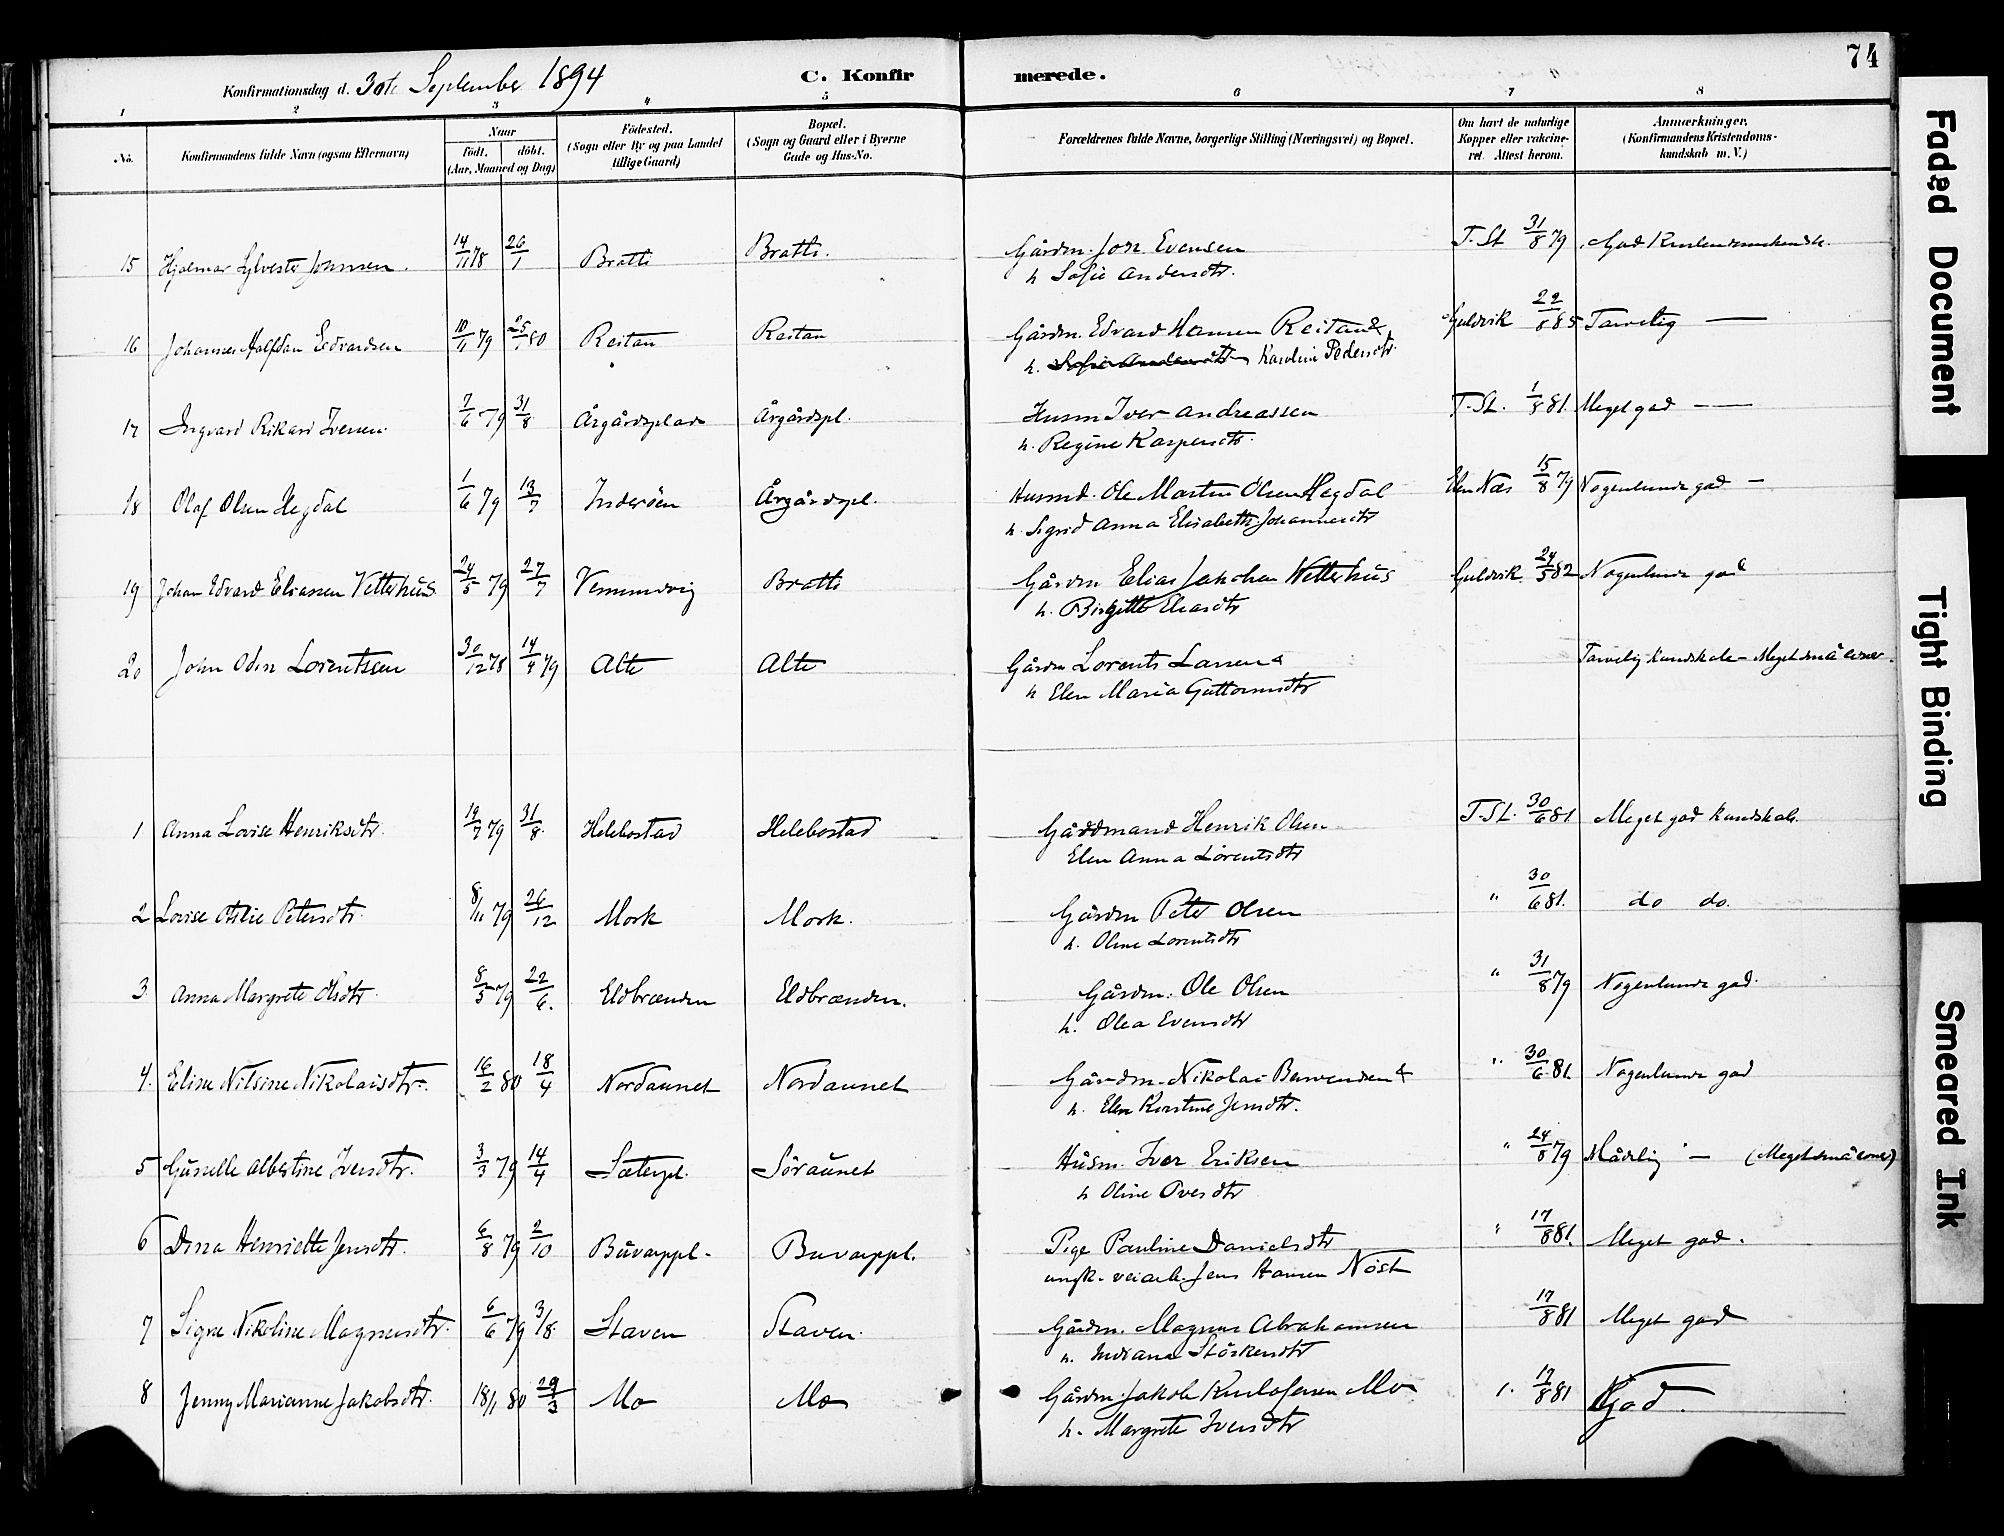 74
Konfirmationsdag d. 30te September 1894
C. Konfirmerede.
1 2 3 4 5 6 7 8
No.
Konfirmandens fulde Navn (ogsaa Efternavn)
Naar
Födt. döbt.
(Aar, Maaned og Dag)
Födested.
(Sogn eller By og paa Landet
tillige Gaard)
Bopæl.
(Sogn og Gaard eller i Byerne
Gade og Hus-No.
Forældrenes fulde Navne, borgerlige Stilling (Næringsvei) og Bopæl.
Om havt de naturlige
Kopper eller vakcine-
ret. Attest herom.
Anmærkninger.
(Konfirmandens Kristendoms-
kundskab m. V.)
15 Hjalmar Sylvester Johnsen. 14/11 78 26/1 Bratli Bratli. Gårdm. John Evensen T. St 31/8 79 God Kristendomskundsk.
h. Sofie Andersdtr.
16 Johannes Halfdan Edvardsen 10/11 79 25/1 80 Reitan Reitan Gårdm. Edvard Hansen Reitan & Guldvik 22/8 85 Tarvelig —
h. Sofie Andersdtr Karoline Pedersdtr.
17 Ingvard Rikard Iversen. 7/6 79 31/8 Årgårdsplads Årgårdspl. Husm Iver Andreassen T. St. 1/8 81 Meget god — —
h. Regine Kaspersdtr.
18 Olaf Olsen Hegdal 1/6 79 13/7 Inderöen Årgårdspl. Husmd. Ole Martin Olsen Hegdal Elen Næs 15/8 79 Nogenlunde god —
h. Sigrid Anna Elisabeth Johannesdtr
19 Johan Edvard Eliassen Vetterhus 24/5 79 27/7 Vemundvig Bratli Gårdm Elias Jakobsen Vetterhus Guldvik. 24/5 82 Nogenlunde god
h. Birgitte Eliasdtr
20 John Odin Lorentssen 30/12 78 14/4 79 Alte Alte Gårdm Lorents Larsen & Tarvelig kundskab — Meget små evner.
h Elen Maria Guttormsdtr
1 Anna Lovise Henriksdtr. 19/7 79 31/8. Helebostad Helebostad Gårdmand Henrik Olsen T. St. 30/6 81. Meget god kundskab.
Elen Anna Lorentsdtr
2 Lovise Otilie Petersdtr. 8/11 79 26/12 Mork Mork. Gårdm Peter Olsen " 30/6 81. do do.
h. Oline Lorentsdtr
3. Anna Margrete Olsdtr. 8/5 79 22/6. Eldbrænden Eldbrænden. Gårdm. Ole Olsen " 31/8 79 Nogenlunde god.
h. Olea Evensdtr
4. Eline Nilsine Nikolaisdtr. 16/2 80 18/4 Nordaunet Nordaunet Gårdm. Nikolai &  " 30/6 81. Nogenlunde god
h. Elen Kirstine Jensdtr.
5 Albertine Iversdtr. 3/3 79 14/4 Sæterpl. Söraunet Husm. Iver Eriksen " 24/8 79 Mådelig " — (Meget små evner)
h Oline Ovesdtr
6 Dina Henriette Jensdtr. 6/8 79 2/10 Buvarppl. Buvarppl. Pige Pauline Danielsdtr " 17/8 81. Meget god.
ungk. veiarb. Jens Hansen Nöst
7 Signe Nikoline Magnusdtr. 6/6 79 3/8. Staven Staven. Gårdm. Magnus Abrahamsen 17/8 81 Meget god
h. Indiana Störkersdtr
8 Jenny Marianne Jakobsdtr. 18/1 80 29/3 Mo Mo Gårdm. Jakob Kristofersen Mo 17/8 81 God.
h. Margrete Iversdtr
Faded Document
Tight Binding
Smeared Ink